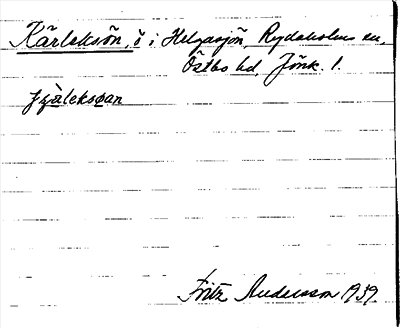 Kärleksön, ö i Helgasjön, Rydaholms sn,
Östbo hd, Jönk. l.
çɑ̀leksøan
Fritz Andersson 1939